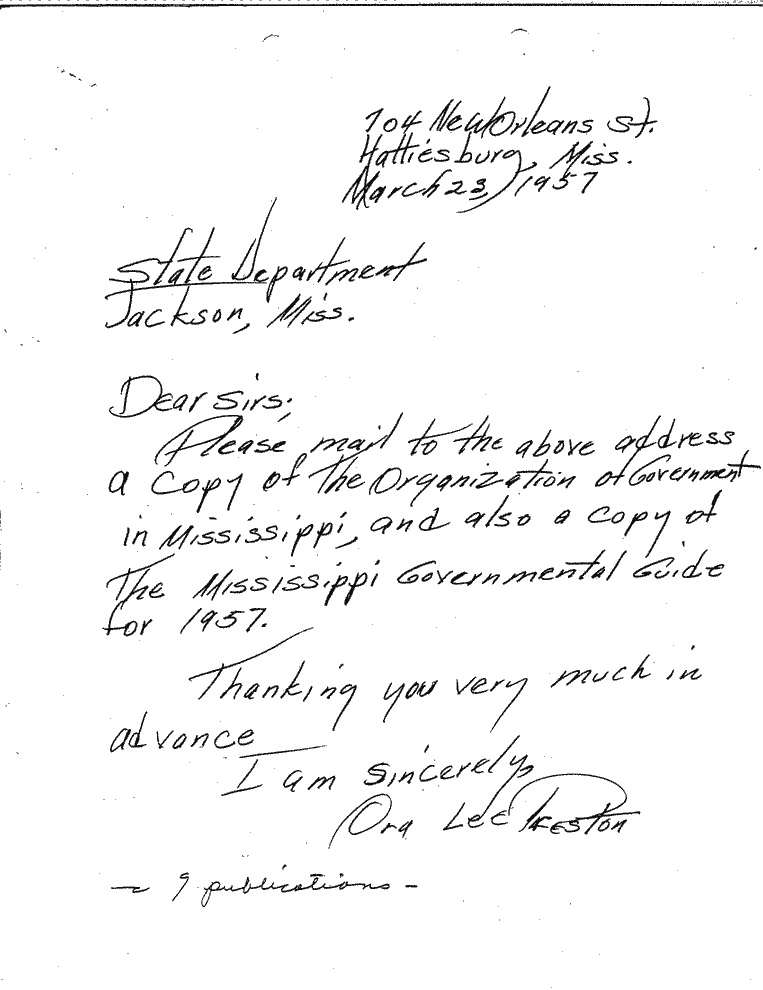 704 New Orleans St.
Hattiesburg, Miss.
March 23, 1957
State Department
Jackson, Miss.
Dear Sirs;
Please mail to the above address
a copy of The Organization of Government
in Mississippi, and also a copy of
The Mississippi Governmental Guide
for 1957.
Thanking you very much in
advance
I am sincerely,
Ora Lee Preston
9 publications -